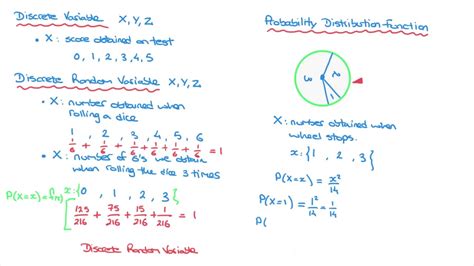 Discrete Variable X, Y, Z
• X: score obtained on test
0, 1, 2, 3, 4, 5
Discrete Random Variable X, Y, Z
• X: number obtained when
rolling a dice
1, 2, 3, 4, 5, 6
1/6 + 1/6 + 1/6 + 1/6 + 1/6 + 1/6 = 1
• X: number of 6's we obtain
when rolling the dice 3 times
x:{0, 1, 2, 3}
P(X=x)
125/216 + 75/216 + 15/216 + 1/216 = 1
Discrete Random Variable
Probability Distribution Function
3 2
1
X: number obtained when
wheel stops.
x:{1, 2, 3}
P(X=x) = x²/14
P(X=1) = 1²/14 = 1/14
P(